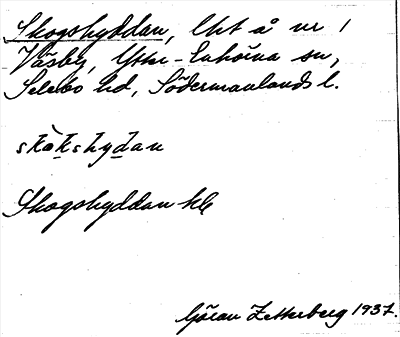 Skogshyddan, lht å nr 1
Väsby, Ytter-Enhörna sn,
Selebo hd, Södermanlands l.
skòkshydan
Skogshyddan hlg
Göran Zetterberg 1937.